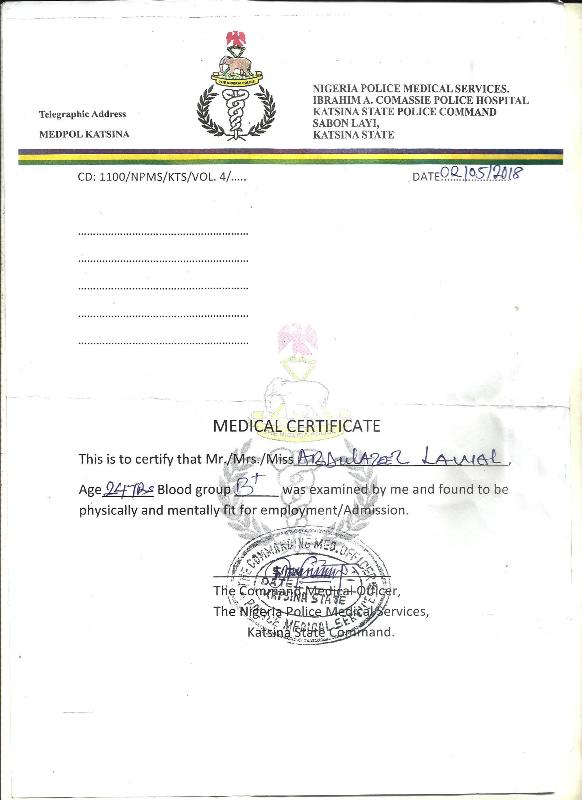 THE NIGERIA POLICE
Telegraphic Address
MEDPOL KATSINA
NIGERIA POLICE MEDICAL SERVICES.
IBRAHIM A. COMASSIE POLICE HOSPITAL
KATSINA STATE POLICE COMMAND
SABON LAYI,
KATSINA STATE
CD: 1100/NPMS/KTS/VOL. 4/.....
DATE 02/05/2018
MEDICAL CERTIFICATE
This is to certify that Mr./Mrs./Miss ABDULAZEEZ LAWAL,
Age 24yrs Blood group B+ was examined by me and found to be
physically and mentally fit for employment/Admission.
THE COMMANDING MED. OFFICER
SIGN
DATE
KATSINA STATE
POLICE MEDICAL SERVICES
The Command Medical Officer,
The Nigeria Police Medical Services,
Katsina State Command.